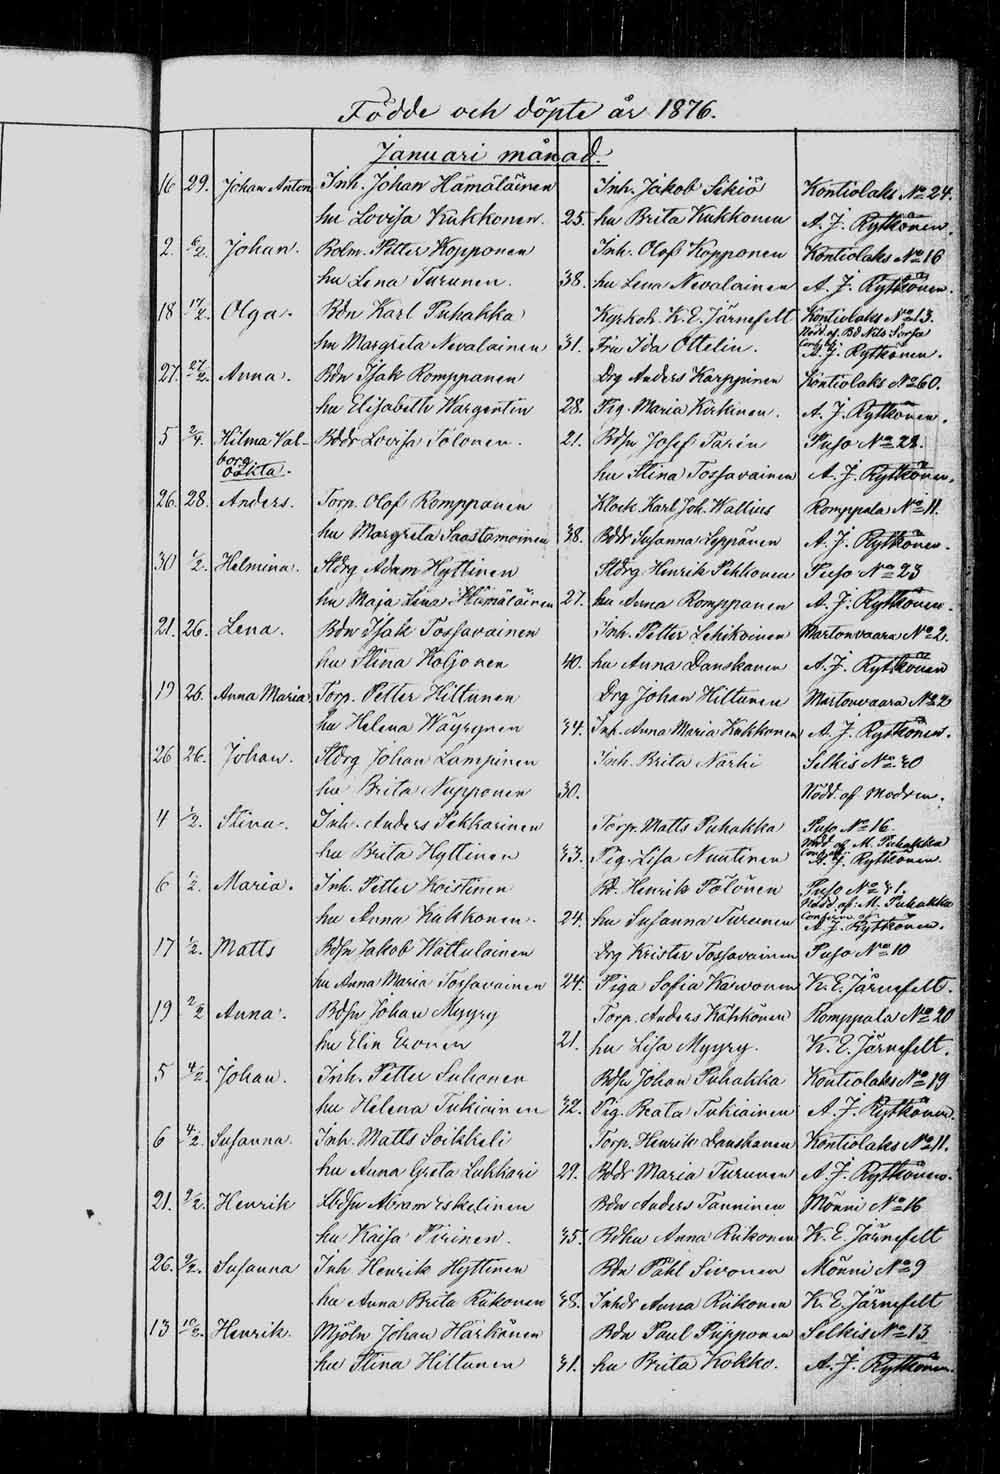 Födde och döpte år 1876.
Januari månad.
16 29. Johan Anton Inh. Johan Hämäläinen Inh. Jakob Sikiö Kontiolaks No 24.
hu Lovisa Kukkonen. 25. hu Brita Kukkonen A. J. Rytkönen.
2. 6/2. Johan. Bolm. Petter Kopponen Inh. Olof Kopponen Kontiolaks No 16
hu Lena Turunen. 38. hu Lena Nevalainen A. J. Rytkönen.
18 17/2. Olga. Bdn Karl Puhakka Kyrkoh. K. E. Järnefelt Kontiolaks No 13.
Nödd. af Bd Nils Sorsa
hu Margreta Nevalainen 31. Fru Ida Ottelin. A. J. Rytkönen.
27. 27/2. Anna. Bdn Isak Romppanen Drg Anders Karppinen Kontiolaks No 60.
hu Elisabeth Wargentin 28. Pig. Maria Kirkinen. A. J. Rytkönen.
5 2/4. Hilma Val- Bddr Lovisa Tolonen. 21. Bdsn Josef Tarin Puso No 22.
borg
oäkta. hu Stina Tossavainen A. J. Rytkönen.
26. 28. Anders. Torp. Olof Romppanen Klock. Karl Joh. Wallius Romppala No 11.
hu Margreta Saastamoinen 38. Bddr Susanna Leppänen A. J. Rytkönen.
30 1/2. Helmina. Stdrg Adam Hyttinen Stdrg Henrik Pehkonen Puso No 23
hu Maja Lena Hämäläinen 27. hu Anna Romppanen A. J. Rytkönen.
21. 26. Lena. Bdn Isak Tossavainen Inh. Petter Lehikoinen Martonvaara No 2.
hu Stina Koljonen 40. hu Anna Danskanen A. J. Rytkönen
19 26. Anna Maria Torp. Petter Hiltunen Drg Johan Hiltunen Martonvaara No 2
hu Helena Wäyrynen 34. Inh. Anna Maria Kukkonen A. J. Rytkönen.
26 26. Johan. Stdrg Johan Lampinen Inh. Brita Närhi Selkis No 30
hu Brita Nupponen 30. Nödd. af Modren.
4 1/2. Stina. Inh. Anders Pekkarinen Torp. Matts Puhakka Puso No 16.
Nöd. af M. Puhakka
hu Brita Hyttinen 33. Pig. Lisa Nuutinen A. J. Rytkönen
6 1/2. Maria. Inh. Petter Koistinen Bd. Henrik Pölönen Puso No 31.
Nödd. af M. Puhakka
hu Anna Kukkonen. 24. hu Susanna Turunen Confirm. af A. J. Rytkönen.
17 1/2. Matts Bdsn Jakob Wattulainen Drg Krister Tossavainen Puso No 10
hu Anna Maria Tossavainen 24. Piga Sofia Karvonen K. E. Järnefelt.
19 2/2 Anna. Bdsn Johan Myyry Torp. Anders Kähkönen Romppala No 20
hu Elin Eronen 21. hu Lisa Myyry. K. E. Järnefelt.
5 4/2. Johan. Inh. Petter Suhonen Bdsn Johan Puhakka Kontiolaks No 19
hu Helena Tukiainen 32. Pig. Beata Tukiainen A. J. Rytkönen.
6 4/2. Susanna. Inh. Matts Soikkeli Torp. Henrik Danskanen Kontiolaks No 11.
hu Anna Greta Lukkari 29. Bddr Maria Turunen A. J. Rytkönen.
21. 9/2. Henrik Abram Eskelinen Bdn Anders Tanninen Mönni No 16
hu Kaisa Piirinen. 35. Bdhu Anna Riikonen K. E. Järnefelt
26. 9/2. Susanna Inh Henrik Hyttinen Bdn Påhl Sivonen Mönni No 9
hu Anna Brita Riikonen 38. Inhdr Anna Riikonen K. E. Järnefelt
13 10/2. Henrik. Mjöln Johan Härkönen Bdn Paul Piipponen Selkis No 13
hu Stina Hiltunen 31. hu Brita Kokko. A. J. Rytkönen.